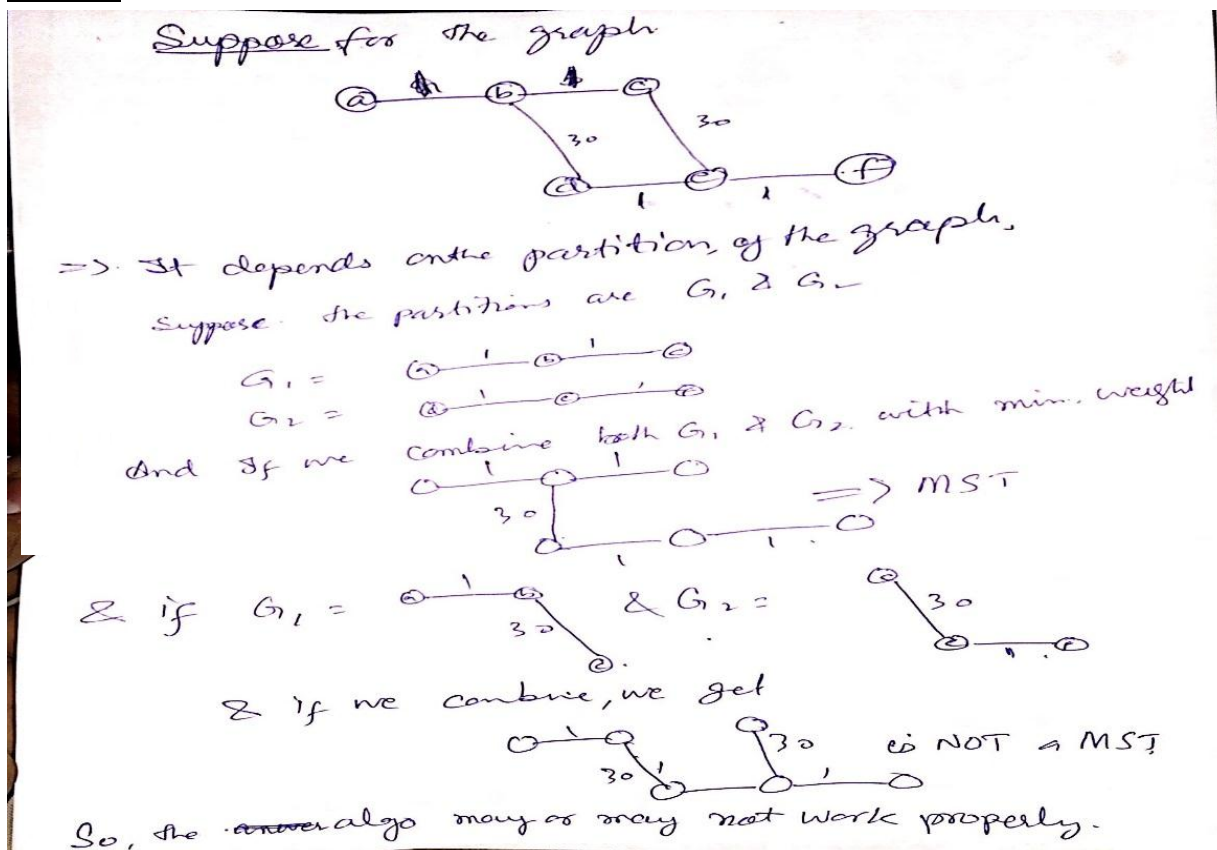 Suppose for the graph
a b c
30 30
d e f
1 1
=> It depends on the partition, of the graph,
Suppose the partitions are G1 & G2
G1 = a 1 b 1 c
G2 = d 1 e 1 f
And If we combine both G1 & G2 with min. weight
1 1
30 => MST
1 1
& if G1 = a 1 b & G2 = c
30 30
d. e f
& if we combine, we get
1 30 is NOT a MST
30 1 1
So, the algo may or may not work properly.